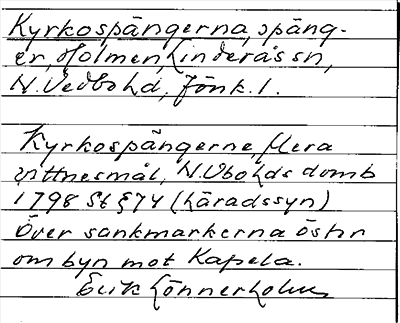 Kyrkospängerna, späng-
er, Holmen, Linderås sn,
N. Vedbo hd, Jönk. l.
Kyrkospängerne, flera
vittnesmål, N. Vbo hds domb
1798 St § 74 (häradssyn)
Över sankmarkerna öster
om byn mot Kapela.
Erik Lönnerholm